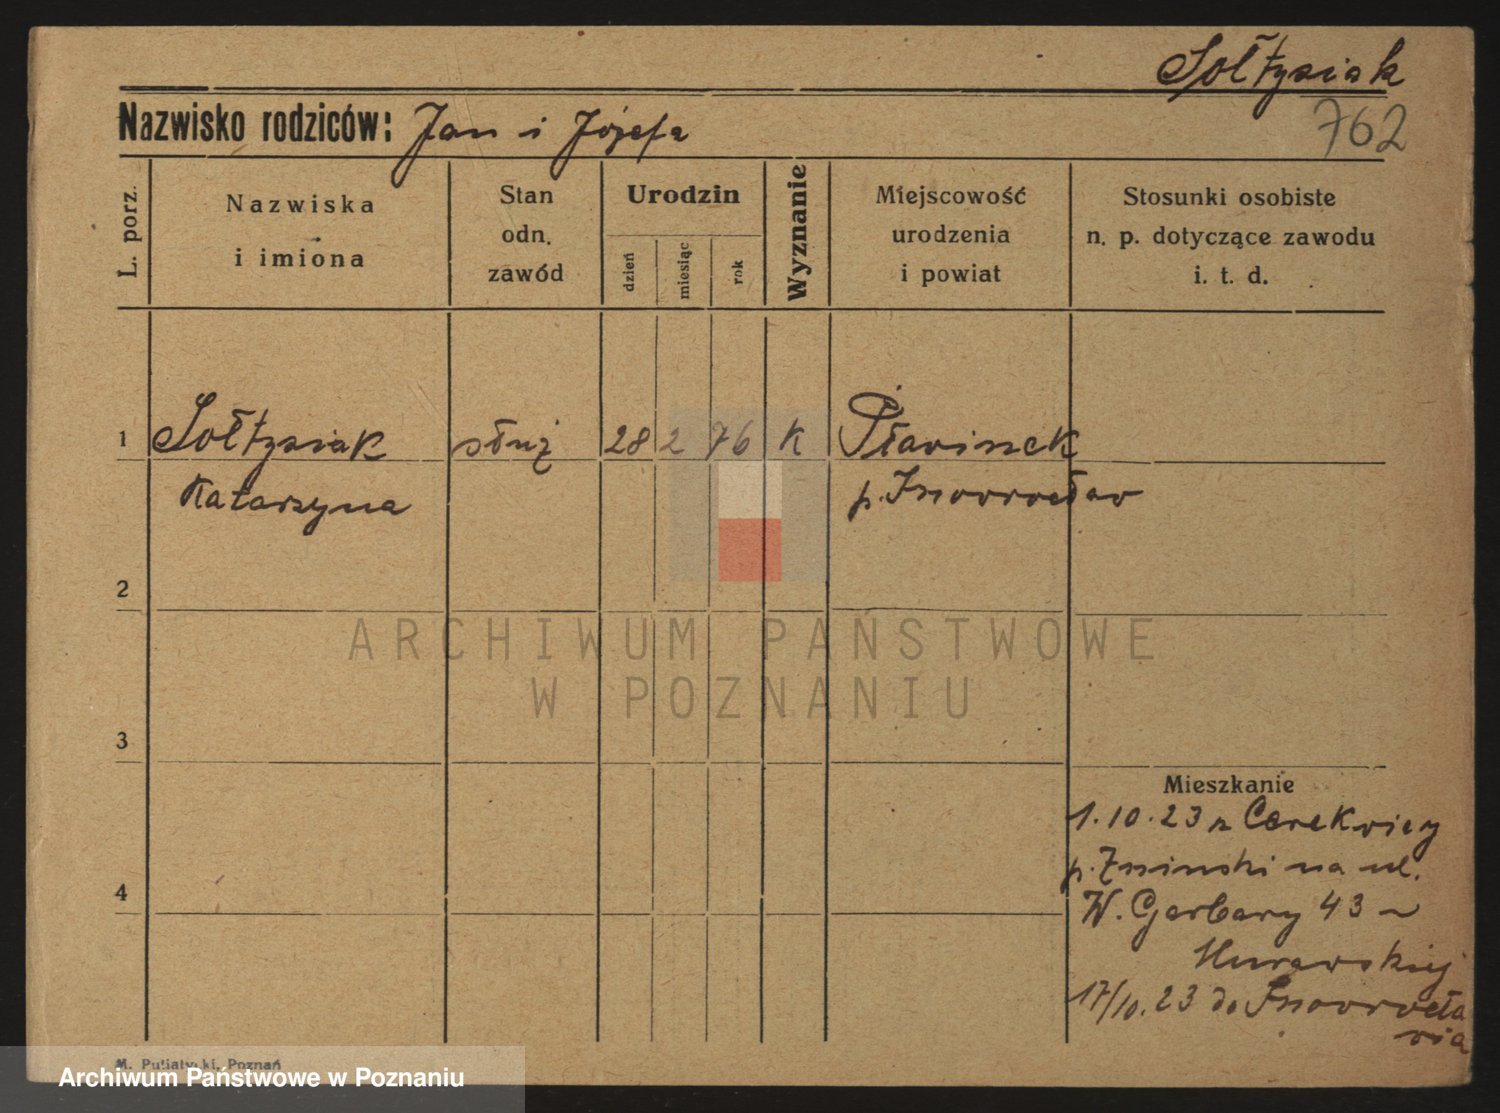 Sołtysiak
762
Nazwisko rodziców: Jan i Józefa
L. porz.
Nazwiska
i imiona
Stan
odn.
zawód
Urodzin
dzień
miesiąc
rok
Wyznanie
Miejscowość
urodzenia
i powiat
Stosunki osobiste
n. p. dotyczące zawodu
i. t. d.
1 Sołtysiak służ 28 2 76 K Pławinek
Katarzyna p. Inowrocław
2
ARCHIWUM PAŃSTWOWE
W POZNANIU
3
Mieszkanie
1.10.23 z Cerekwicy
p. Zninski na ul.
4
W. Garbary 43
Murawskiej
17/10.23 do Inowrocła
wia
M. Putiatycki, Poznań
Archiwum Państwowe w Poznaniu